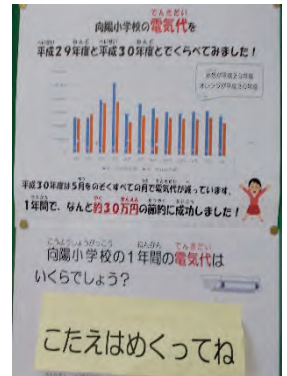 向陽小学校の電気代を
平成29年度と平成30年度とでくらべてみました！
平成30年度は5月をのぞくすべての月で電気代が減っています。
1年間で、なんと約30万円の節約に成功しました！
向陽小学校の1年間の電気代は
いくらでしょう？
こたえはめくってね